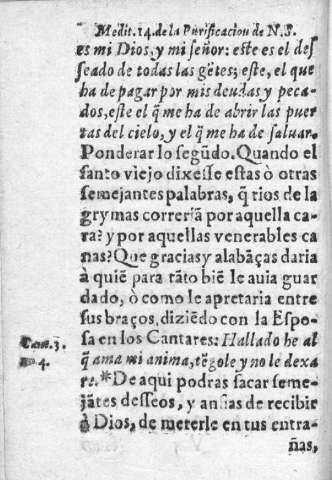 Medit. 14. de la Purificacion de N. S.
es mi Dios, y mi señor: este es el des
seado de todas las gẽtes; este, el que
ha de pagar por mis deudas y peca-
dos, este el q̃ me ha de abrir las puer
tas del cielo, y el q̃ me ha de saluar.
Ponderar lo segũdo. Quando el
santo viejo dixesse estas ò otras
semejantes palabras, q̃ rios de la
grymas correriã por aquella ca-
ra? y por aquellas venerables ca
nas? Que gracias y alabãças daria
à quiẽ para tãto biẽ le auia guar
dado, ò como le apretaria entre
sus braços, diziẽdo con la Espo-
sa en los Cantares: Hallado he al
Can. 3.
q̃ ama mi anima, tẽgole y no le dexa
4.
re.* De aqui podras sacar seme-
jãtes desseos, y ansias de recibir
à Dios, de meterle en tus entra-
ñas,